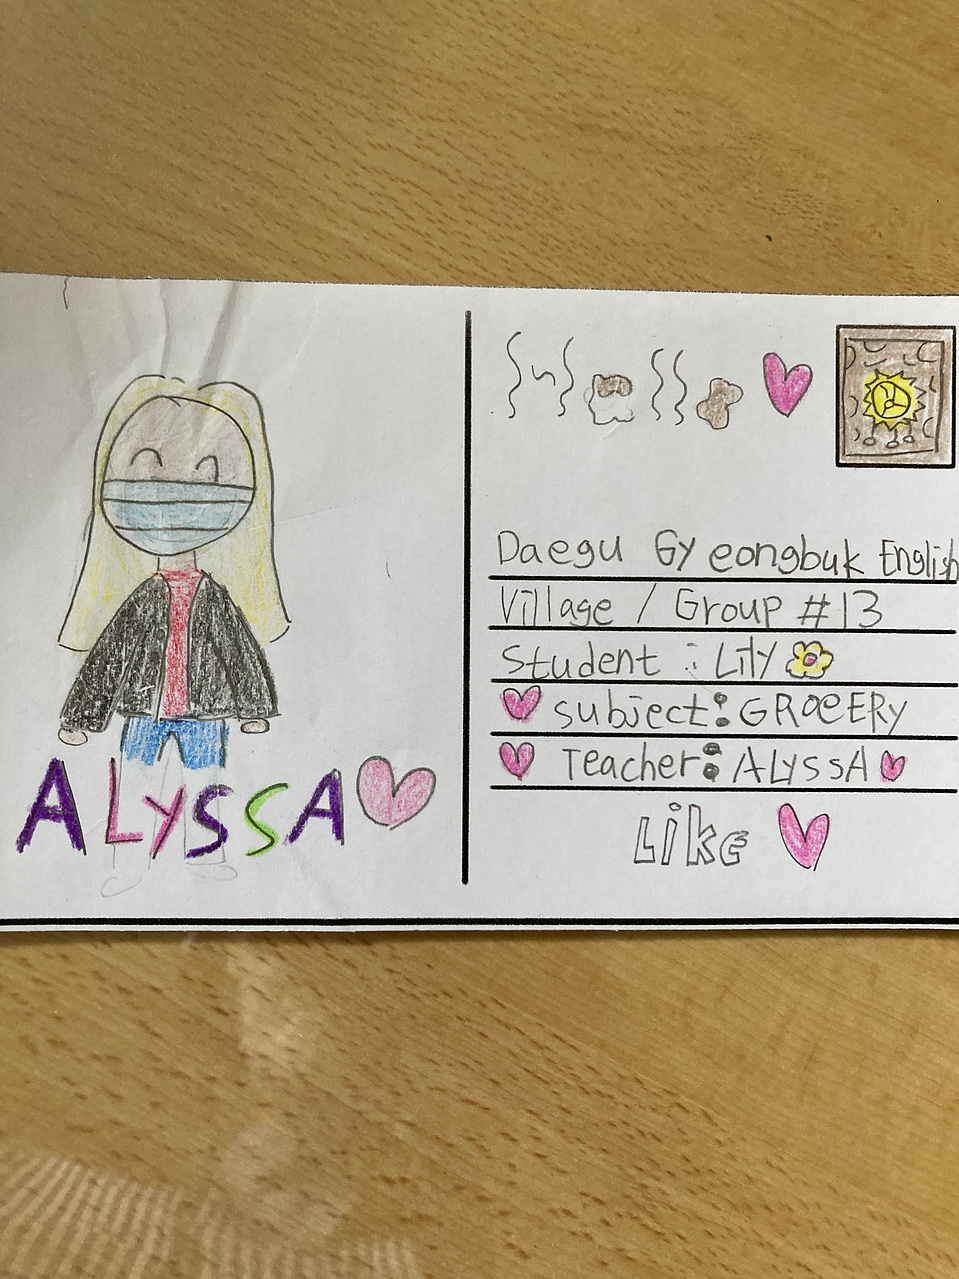 ALYSSA
Daegu Gyeongbuk English
Village / Group #13
Student : Lily
Subject: GROCERY
Teacher: ALYSSA
Like